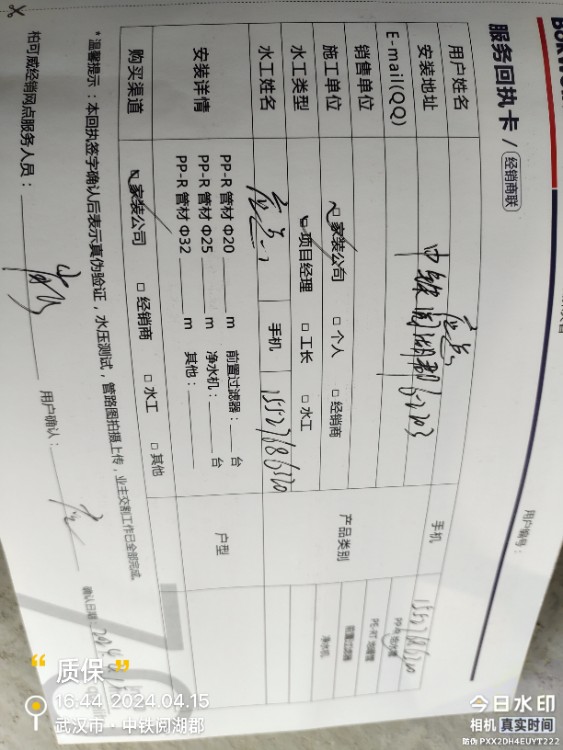 服务回执卡 / 经销商联
用户编号：
用户姓名 应总 手机 15527686320
安装地址 中铁阅湖郡
E-mail(QQ)
销售单位 产品类别 PP-R 给水管
施工单位 家装公司 □ 个人 □ 经销商 PE-RT 地暖管
水工类型 项目经理 □ 工长 □ 水工 前置过滤器
水工姓名 应总 手机 15527686320 净水机
安装详情 PP-R 管材 Φ20 m 前置过滤器： 台 户型
PP-R 管材 Φ25 m 净水机： 台
PP-R 管材 Φ32 m 其他：
购买渠道 家装公司 □ 经销商 □ 水工 □ 其他
*温馨提示：本回执签字确认后表示真伪验证，水压测试，管路图拍摄上传，业主交割工作已全部完成。
柏可威经销网点服务人员： 用户确认： 确认日期
“ 质保 ”
16:44 2024.04.15
武汉市·中铁阅湖郡
今日水印
相机 真实时间
防伪 PXX2DH4EUYT222